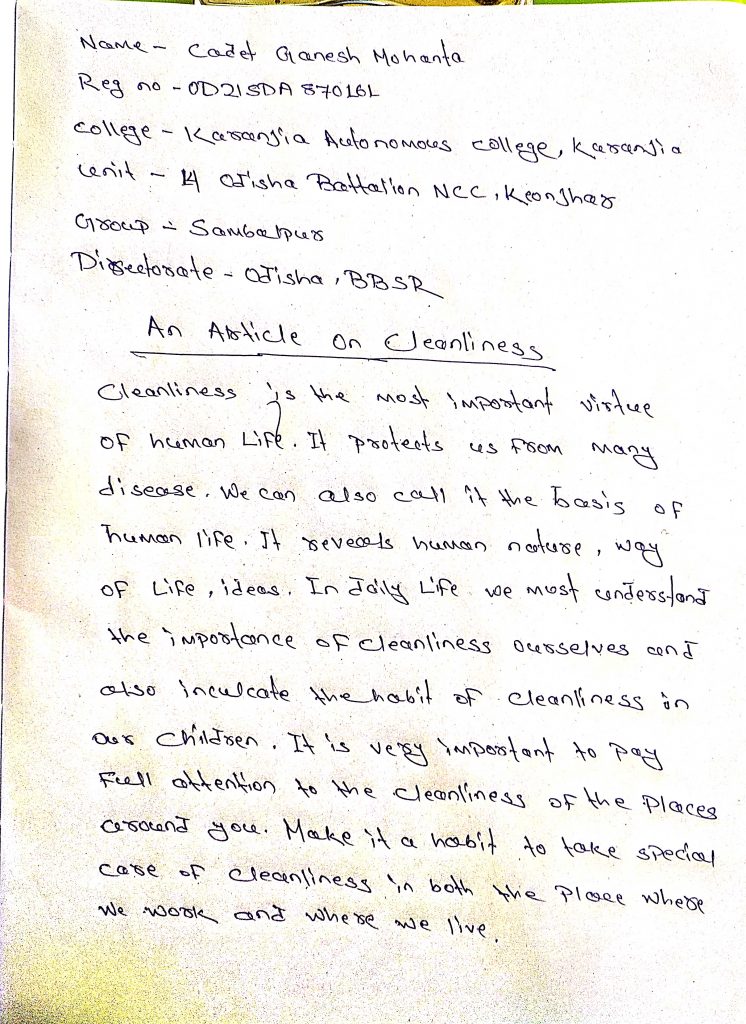 Name - Cadet Ganesh Mohanta
Reg no - OD21SDA 870161
college - Karanjia Autonomous college, Karanjia
unit - 14 Odisha Battalion NCC, Keonjhar
Group - Sambalpur
Directorate - Odisha, BBSR
An Article on Cleanliness
Cleanliness is the most important virtue
of human Life. It protects us from many
disease. We can also call it the basis of
human life. It reveals human nature, way
of Life, ideas. In daily Life we must understand
the importance of cleanliness ourselves and
also inculcate the habit of cleanliness in
our children. It is very important to pay
full attention to the cleanliness of the places
around you. Make it a habit to take special
care of cleanliness in both the place where
we work and where we live.